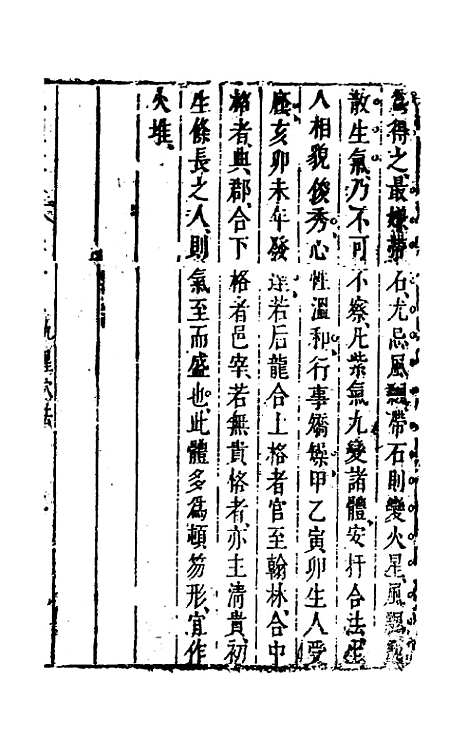 爲得之最嫌帶石尤忌風飄帶石則變火星風飄則
散生氣乃不可不察凡紫氣九變諸體安扦合法生
人相貌俊秀心性溫和行事矯操甲乙寅卯生人受
廕亥卯未年發達若后龍合上格者官至翰林合中
格者典郡合下格者邑宰若無貴格者亦主清貴初
生條長之人則氣至而盛也此體多爲頓笏形宜作
火堆